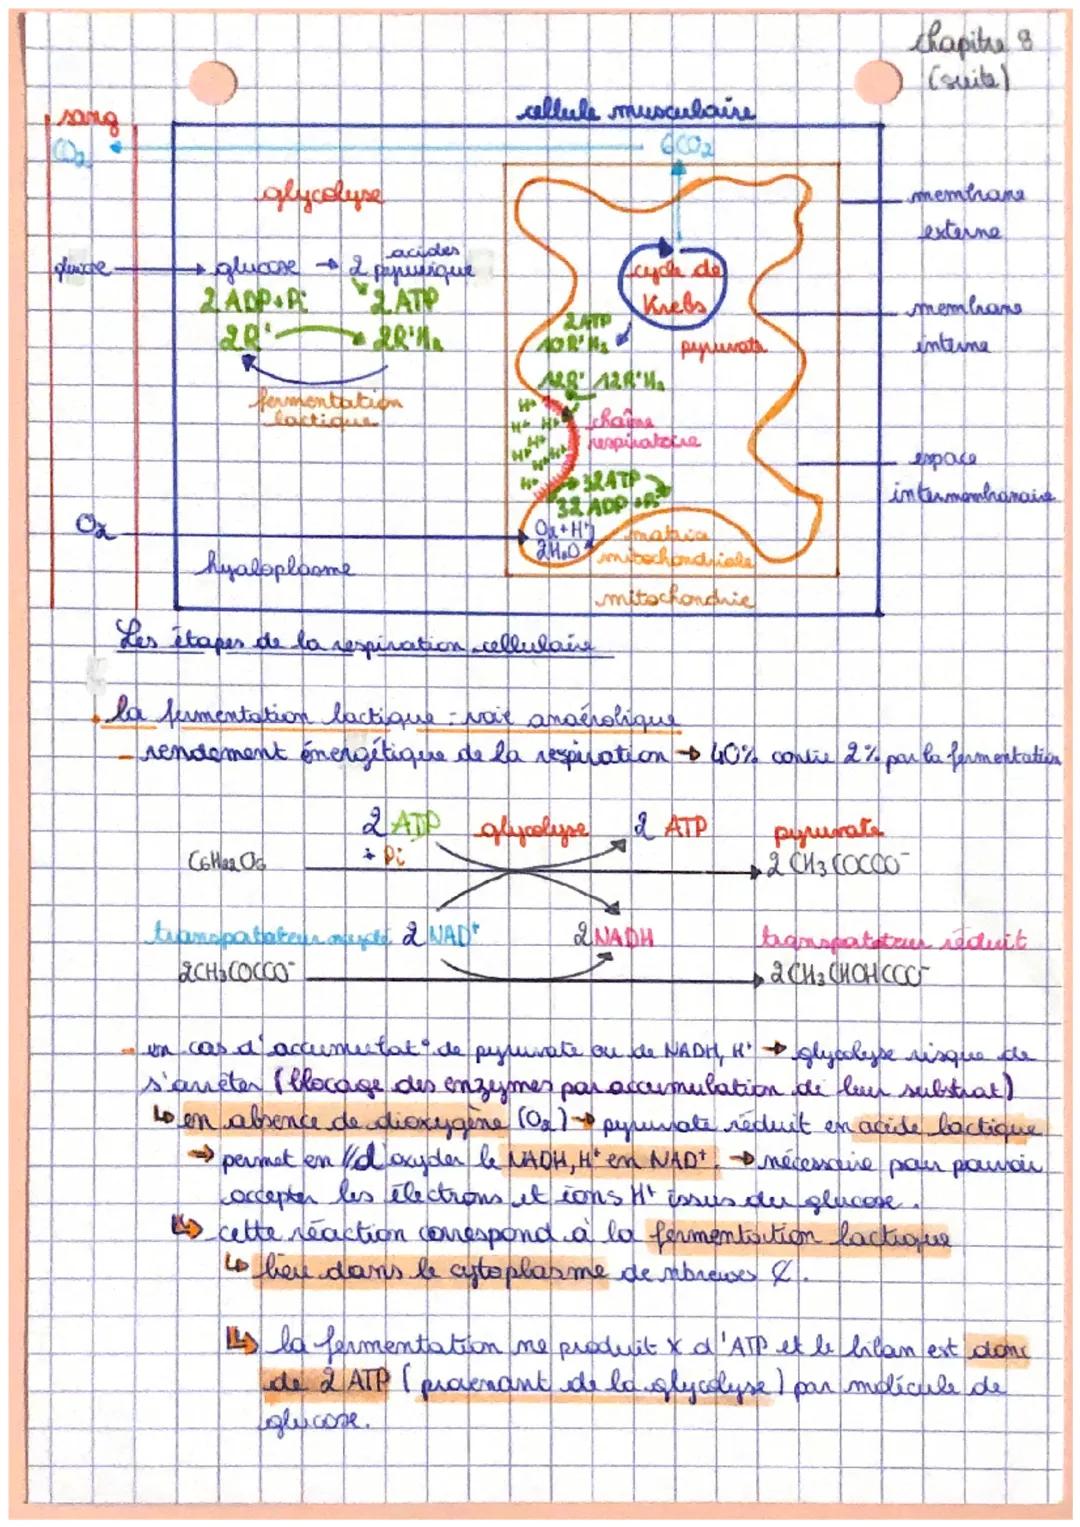 chapitre 8
(suite)
sang
cellule musculaire
CO2
6CO2
glycolyse
membrane
externe
acides
glucose → glucose → 2 pyruvique
cycle de
Krebs
2 ADP + Pi
2 ATP
2R'
2R'H2
membrane
interne
2ATP
10R'H2
pyruvate
fermentation
lactique
12R' 12R'H2
H+
H+ H+
H+
H+ H+
H+ H+
H+
chaîne
respiratoire
espace
intermembranaire
32ATP
32 ADP + Pi
O2
O2 + H+
2H2O
matrice
mitochondriale
hyaloplasme
mitochondrie
Les étapes de la respiration cellulaire
la fermentation lactique : voie anaérobique
- rendement énergétique de la respiration → 40% contre 2% par la fermentation
2 ADP glycolyse 2 ATP pyruvate
+ Pi
C6H12O6 2 CH3COCCO-
transpatateur oxydé 2 NAD+ 2NADH transpatateur réduit
2CH3COCCO- 2CH3CHOHCCO-
- en cas d'accumulat° de pyruvate ou de NADH, H+ → glycolyse risque de
s'arrêter (blocage des enzymes par accumulation de leur substrat)
↳ en absence de dioxygène (O2) → pyruvate réduit en acide lactique
→ permet en // d'oxyder le NADH, H+ en NAD+. → nécessaire pour pouvoir
accepter les électrons et ions H+ issus du glucose.
↳ cette réaction correspond à la fermentation lactique
↳ lieu dans le cytoplasme de nbreuses ₵.
↳ la fermentation ne produit x d'ATP et le bilan est donc
de 2 ATP (provenant de la glycolyse) par molécule de
glucose.